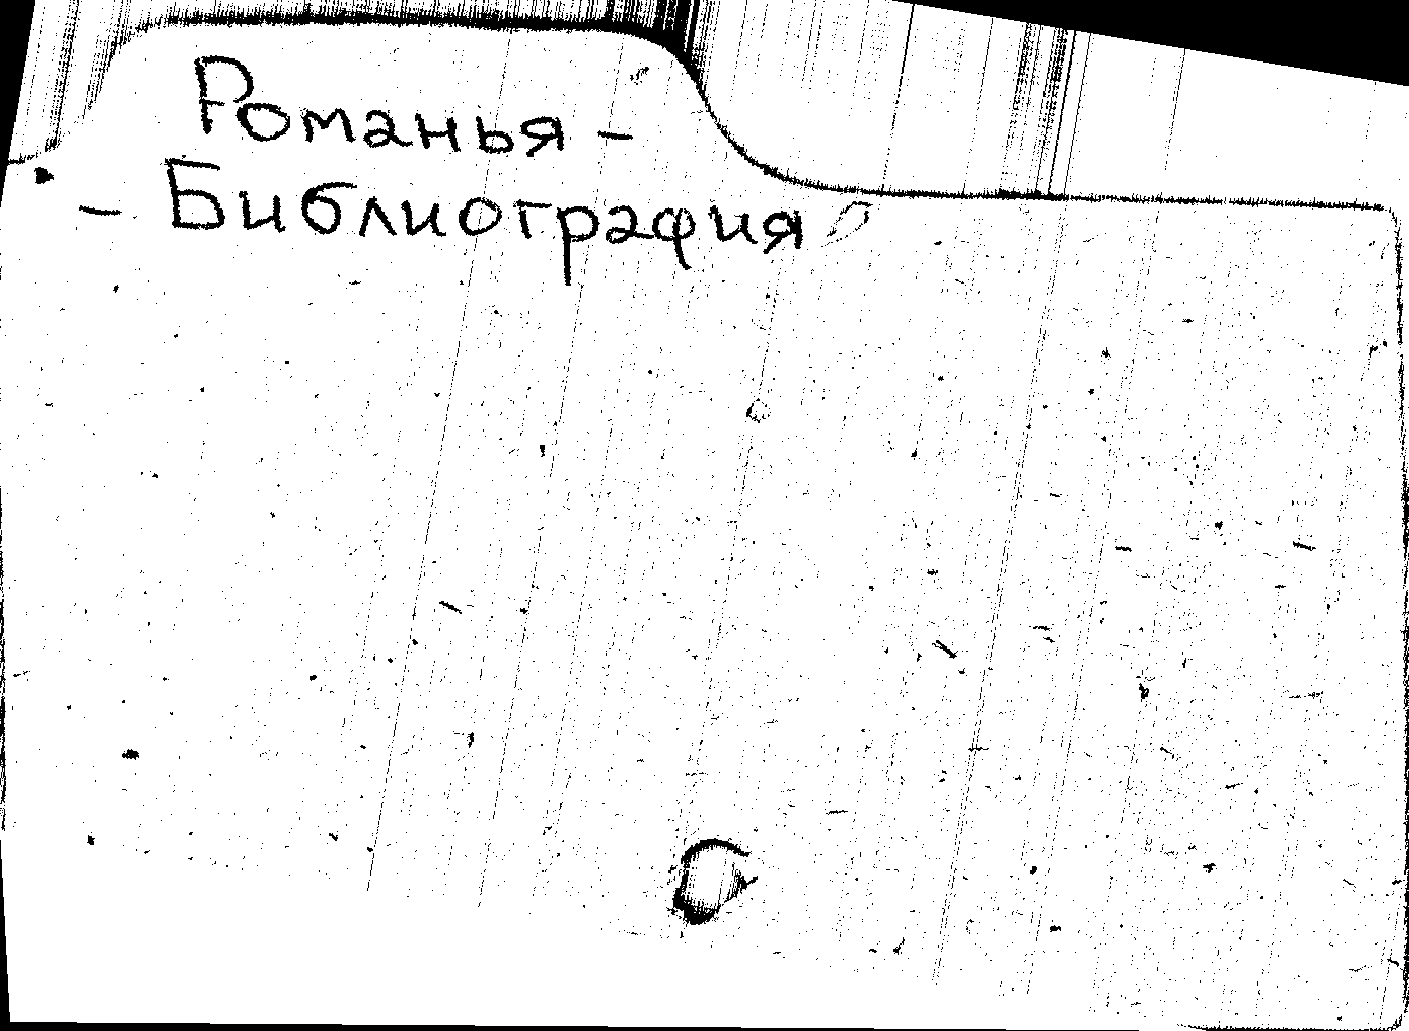 Романья –
– Библиография